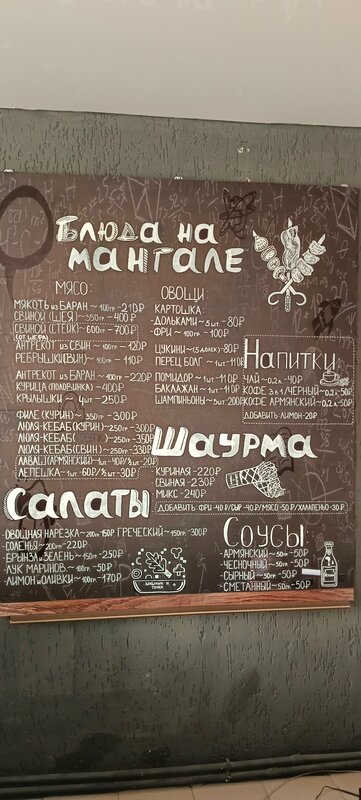 Блюда на
мангале
МЯСО:
МЯКОТЬ из БАРАН ~ 100гр.-210₽
СВИНОЙ (ШЕЯ) ~ 350гр. - 400₽
СВИНОЙ (СТЕЙК) ~ 600гр. - 700₽
(ОТ ШЕФА)
АНТРЕКОТ из СВИН ~ 100гр - 120₽
РЕБРЫШКИ(СВИН) ~ 100гр. - 110₽
АНТРЕКОТ из БАРАН ~ 100гр. - 220₽
КУРИЦА (ПОЛОВИНКА) - 400₽
КРЫЛЫШКИ ~ 4шт - 250₽
ФИЛЕ (КУРИН) ~ 350гр. - 300₽
ЛЮЛЯ-КЕБАБ(КУРИН) ~ 250гр. - 300₽
ЛЮЛЯ-КЕБАБ ~ 250гр. - 350₽
ЛЮЛЯ-КЕБАБ(СВИН) ~ 250гр. - 330₽
ЛАВАШ(АРМЯНСКИЙ) ~ 1шт - 40₽/½ - 20₽
ЛЕПЕШКА ~ 1шт - 60₽/½шт - 30₽
ОВОЩИ:
КАРТОШКА:
ДОЛЬКАМИ ~ 5шт. - 80₽
ФРИ ~ 100гр. - 100₽
ЦУКИНИ ~ (5 ДОЛЕК) - 80₽
ПЕРЕЦ БОЛГ ~ 1шт. - 110₽
ПОМИДОР ~ 1шт - 110₽
БАКЛАЖАН ~ 1шт. - 110₽
ШАМПИНЬОНЫ ~ 5шт 200₽
Напитки
ЧАЙ ~ 0.2л - 40₽
КОФЕ 3в1/ЧЕРНЫЙ ~ 0.2 - 50₽
КОФЕ АРМЯНСКИЙ ~ 0.2л - 50₽
ДОБАВИТЬ ЛИМОН - 20₽
Шаурма
КУРИНАЯ - 220₽
СВИНАЯ - 230₽
МИКС - 240₽
ДОБАВИТЬ: ФРИ - 40₽/СЫР - 40₽/МЯСО - 50₽/ХАЛАПЕНЬО - 30₽
Салаты
ОВОЩНАЯ НАРЕЗКА ~ 200гр 150₽
СОЛЕНЬЯ ~ 200гр. 220₽
БРЫНЗА и ЗЕЛЕНЬ ~ 150гр. - 250₽
ЛУК МАРИНОВ. ~ 100гр. - 50₽
ЛИМОН и ОЛИВКИ ~ 100гр. - 170₽
ГРЕЧЕСКИЙ ~ 150гр. - 300₽
Соусы
АРМЯНСКИЙ ~ 50гр - 50₽
ЧЕСНОЧНЫЙ ~ 50гр. - 50₽
СЫРНЫЙ ~ 50гр. - 50₽
СМЕТАННЫЙ ~ 50гр. - 50₽